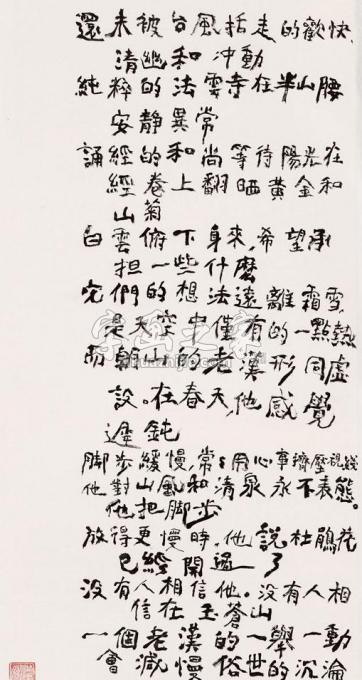 還未被台風括走的歡快、
清幽和冲動
純粹的法雲寺在半山腰
安静異常
誦經的和尚等待陽光在
經卷上翻晒黄金和
山菊
白雲俯下身來,希望承
担一些什麽
它們的想法遠離霜雪,
是天空中僅有的一點熱
而朝山的老漢形同虚
設。在春天,他感覺
遲鈍
脚步緩慢,常常用心事擠壓視綫
他對山風和清泉永不表態。
他把脚步
放得更慢時,他說杜鵑花
已經開過了
没有人相信他。没有人相
信在玉蒼山
一個老漢的一舉一動
會减慢俗世的沉淪